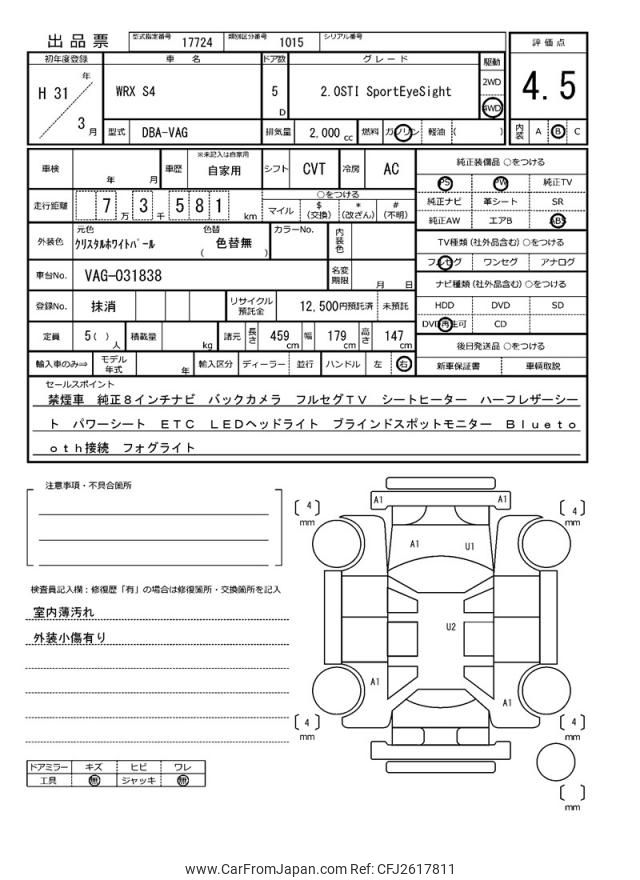 出品票 型式指定番号 17724 類別区分番号 1015 シリアル番号
初年度登録 車 名 ドア数 グレード 駆動 評価点
H 31 年 3 月 WRX S4 5 D 2.0STI SportEyeSight 2WD 4WD 4.5
型式 DBA-VAG 排気量 2,000 cc 燃料 ガソリン 軽油 ( ) 内装 A B C
車検 年 月 車歴 ※未記入は自家用 自家用 シフト CVT 冷房 AC
走行距離 7 万 3 千 5 8 1 km ○をつける
マイル $ (交換) * (改ざん) # (不明)
外装色 元色 クリスタルホワイトパール 色替 ( 色替無 ) カラーNo. 内装色
車台No. VAG-031838 名変期限 月 日
登録No. 抹消 リサイクル預託金 12,500円預託済 未預託
定員 5( ) 人 積載量 kg 諸元 長さ 459 cm 幅 179 cm 高さ 147 cm
輸入車のみ⇒ モデル年式 年 輸入区分 ディーラー 並行 ハンドル 左 右
純正装備品 ○をつける
PS PW 純正TV
純正ナビ 革シート SR
純正AW エアB ABS
TV種類 (社外品含む) ○をつける
フルセグ ワンセグ アナログ
ナビ種類 (社外品含む) ○をつける
HDD DVD SD
DVD再生可 CD
後日発送品 ○をつける
新車保証書 車輌取説
セールスポイント
禁煙車 純正8インチナビ バックカメラ フルセグTV シートヒーター ハーフレザーシー
ト パワーシート ETC LEDヘッドライト ブラインドスポットモニター Blueto
oth接続 フォグライト
注意事項・不具合箇所
検査員記入欄：修復歴「有」の場合は修復箇所・交換箇所を記入
室内薄汚れ
外装小傷有り
ドアミラー キズ ヒビ ワレ
工具 無 ジャッキ 無
A1 A1
[ 4 ] mm [ 4 ] mm
A1 U1
U2
A1 A1
[ 4 ] mm [ 4 ] mm
[ ] mm
www.CarFromJapan.com Ref: CFJ2617811